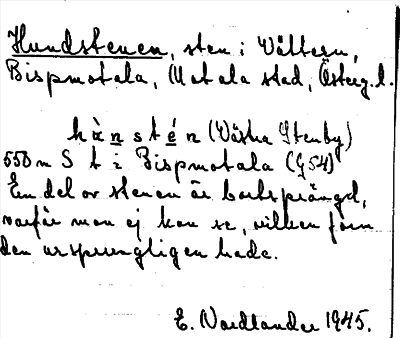 Hundstenen, sten i Vättern,
Bispmotala, Motala stad, Österg. l.
hùnstén (Västra Stenby)
550 m S t i Bispmotala (G54)
En del av stenen är bortsprängd,
varför man ej kan se, vilken form
den ursprungligen hade.
E. Nordlander 1945.